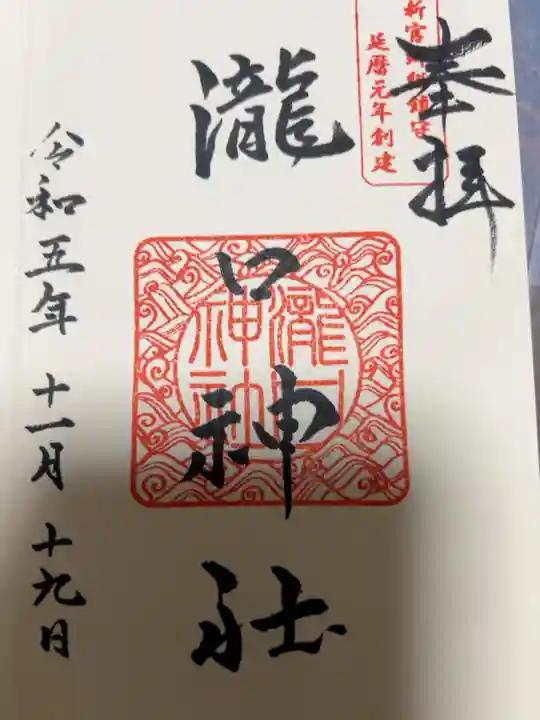 奉拝
延暦元年創建
瀧口神社
瀧口
神社
令和五年 十一月 十九日